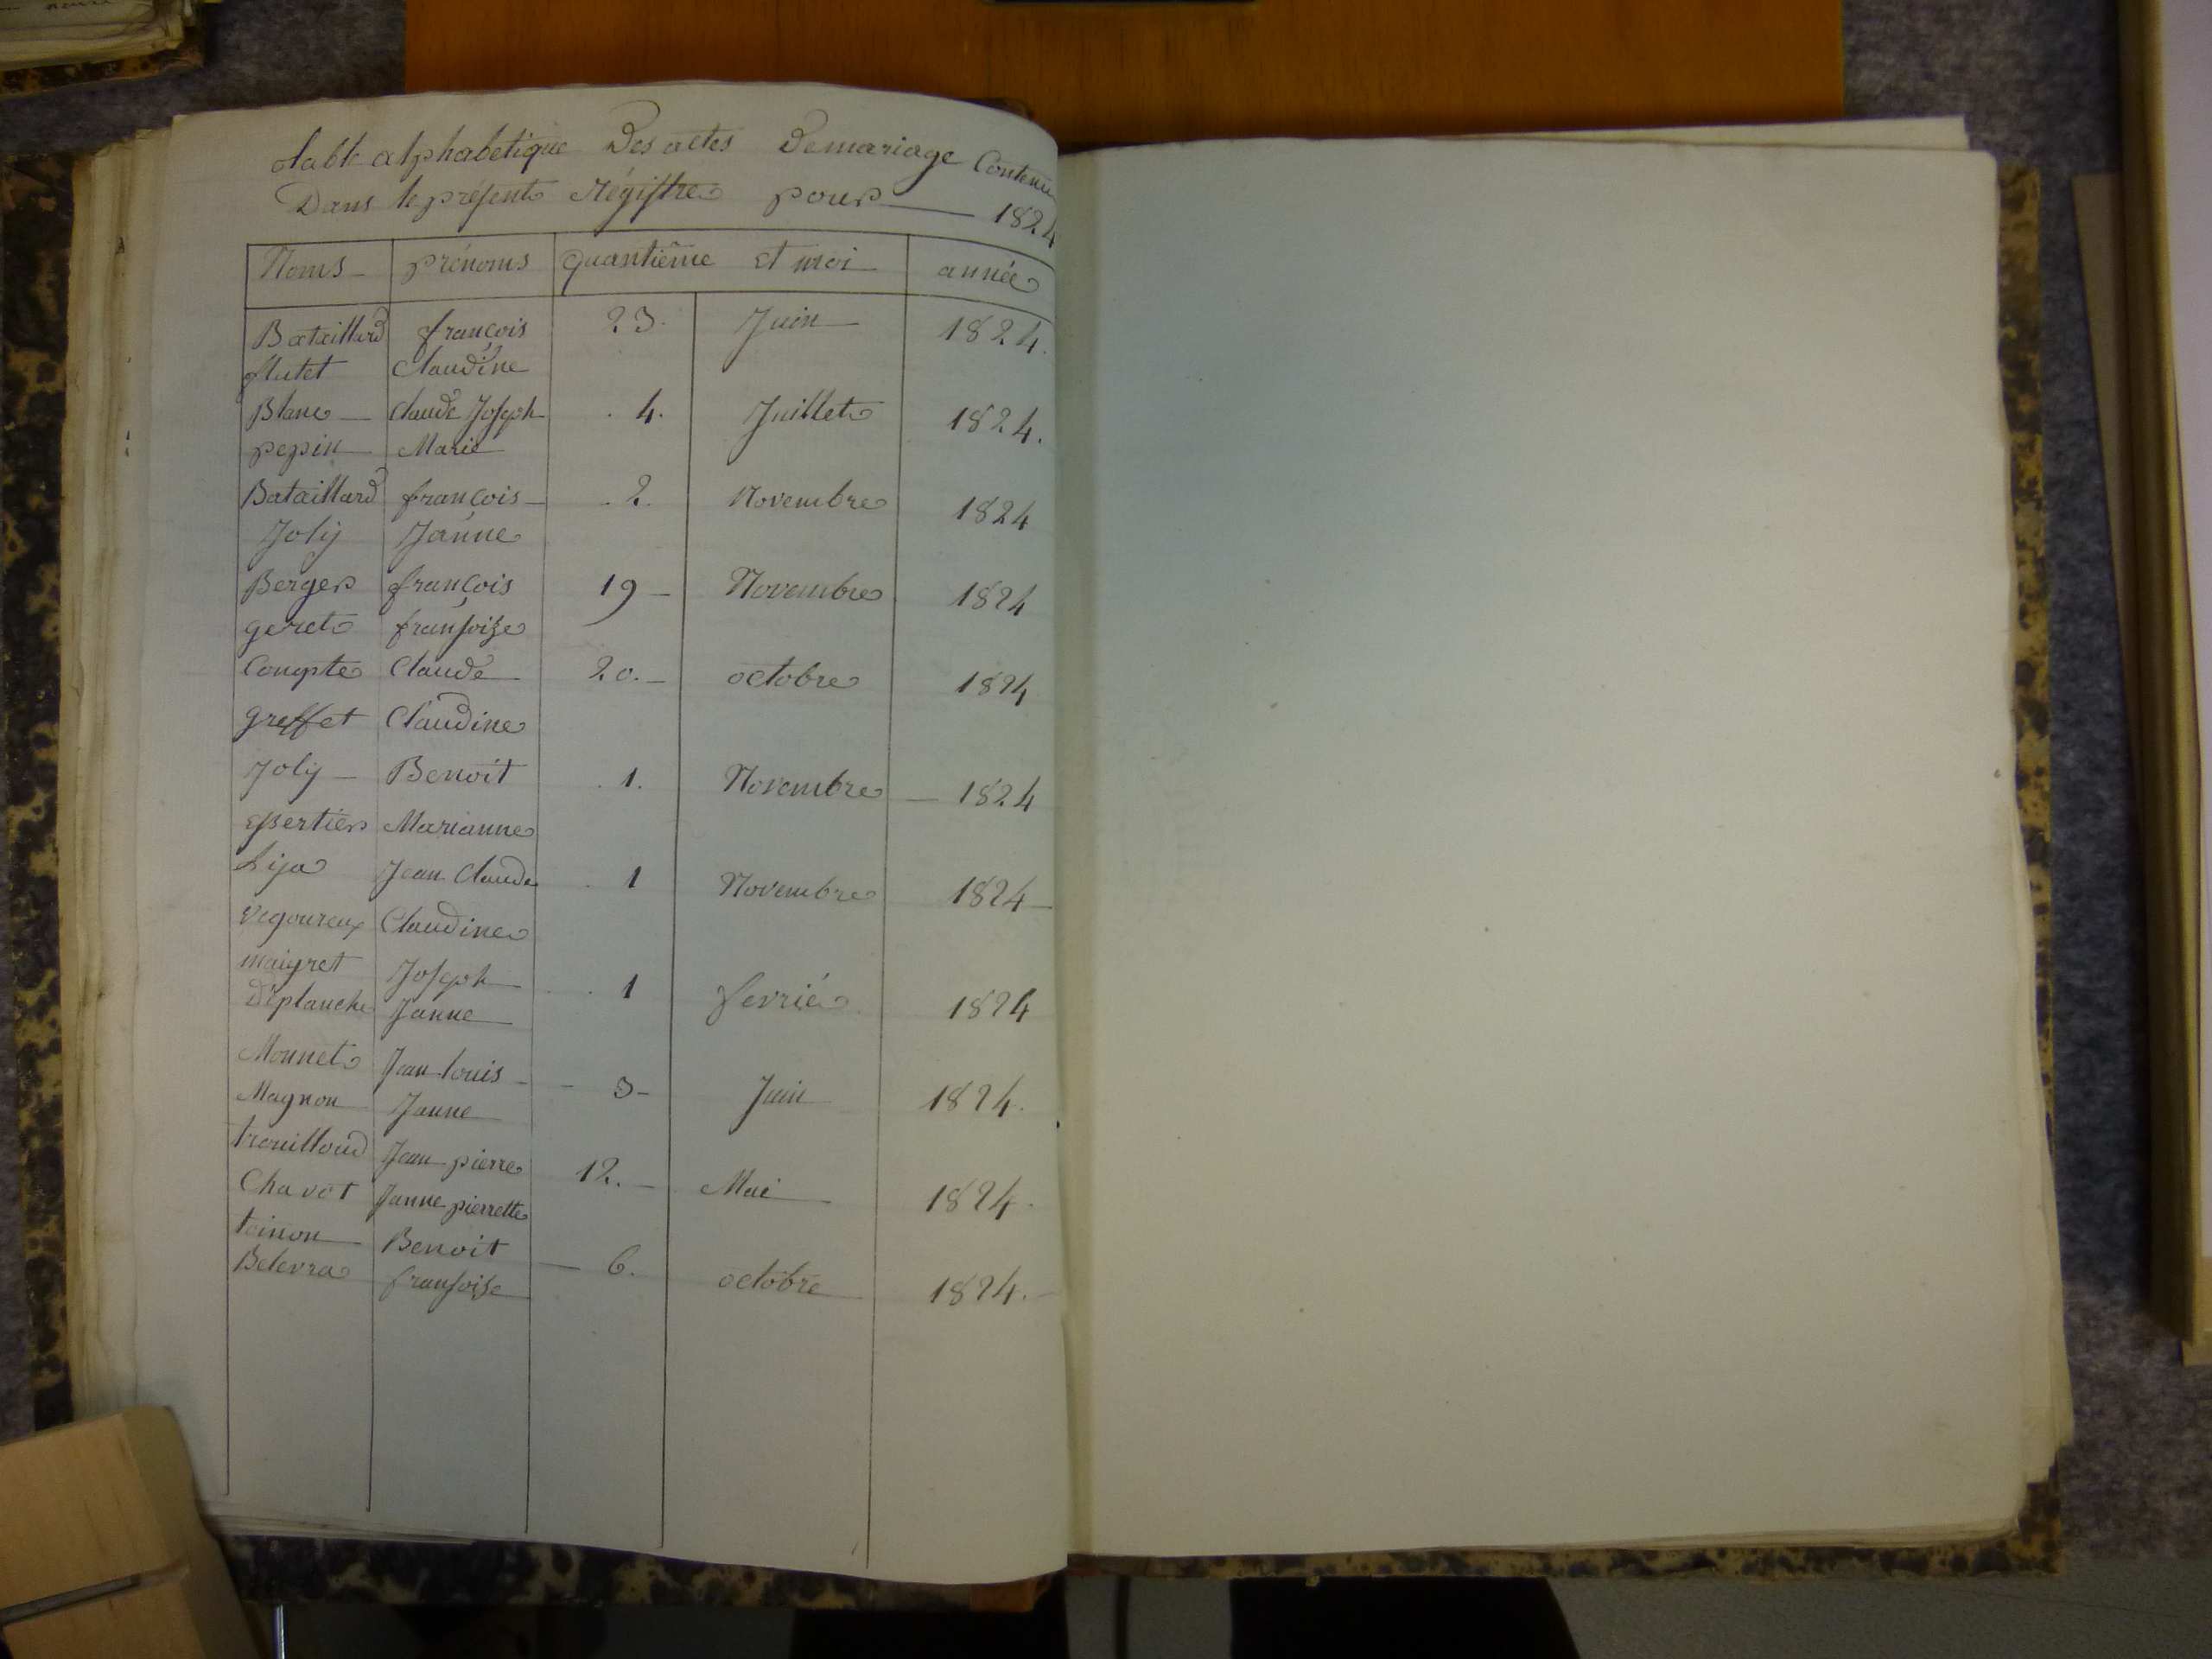 table alphabetique Des actes Demariage Contenu
Dans le présent Régistre pour 1824
Noms prénoms quantième et moi année
Bataillard françois 23. Juin 1824.
flutet Claudine
Blanc Claude Joseph 4. Juillet 1824.
pepin Marie
Bataillard françois 2. Novembre 1824
Joly Janne
Berger françois 19 Novembre 1824
geret fransoize
Compte Claude 20. octobre 1824
greffet Claudine
Joly Benoit 1. Novembre 1824
Marianne
Jean Claude 1 Novembre 1824
Vegoureux Claudine
maigret Joseph 1 fevrié 1824
Déplanche Janne
Monnet Jean louis 3 Juin 1824.
Magnon Janne
trouilloud Jean pierre 12. Mai 1824.
Chavot Janne pierrette
toinon Benoit 6. octobre 1824.
Belevra fransoize